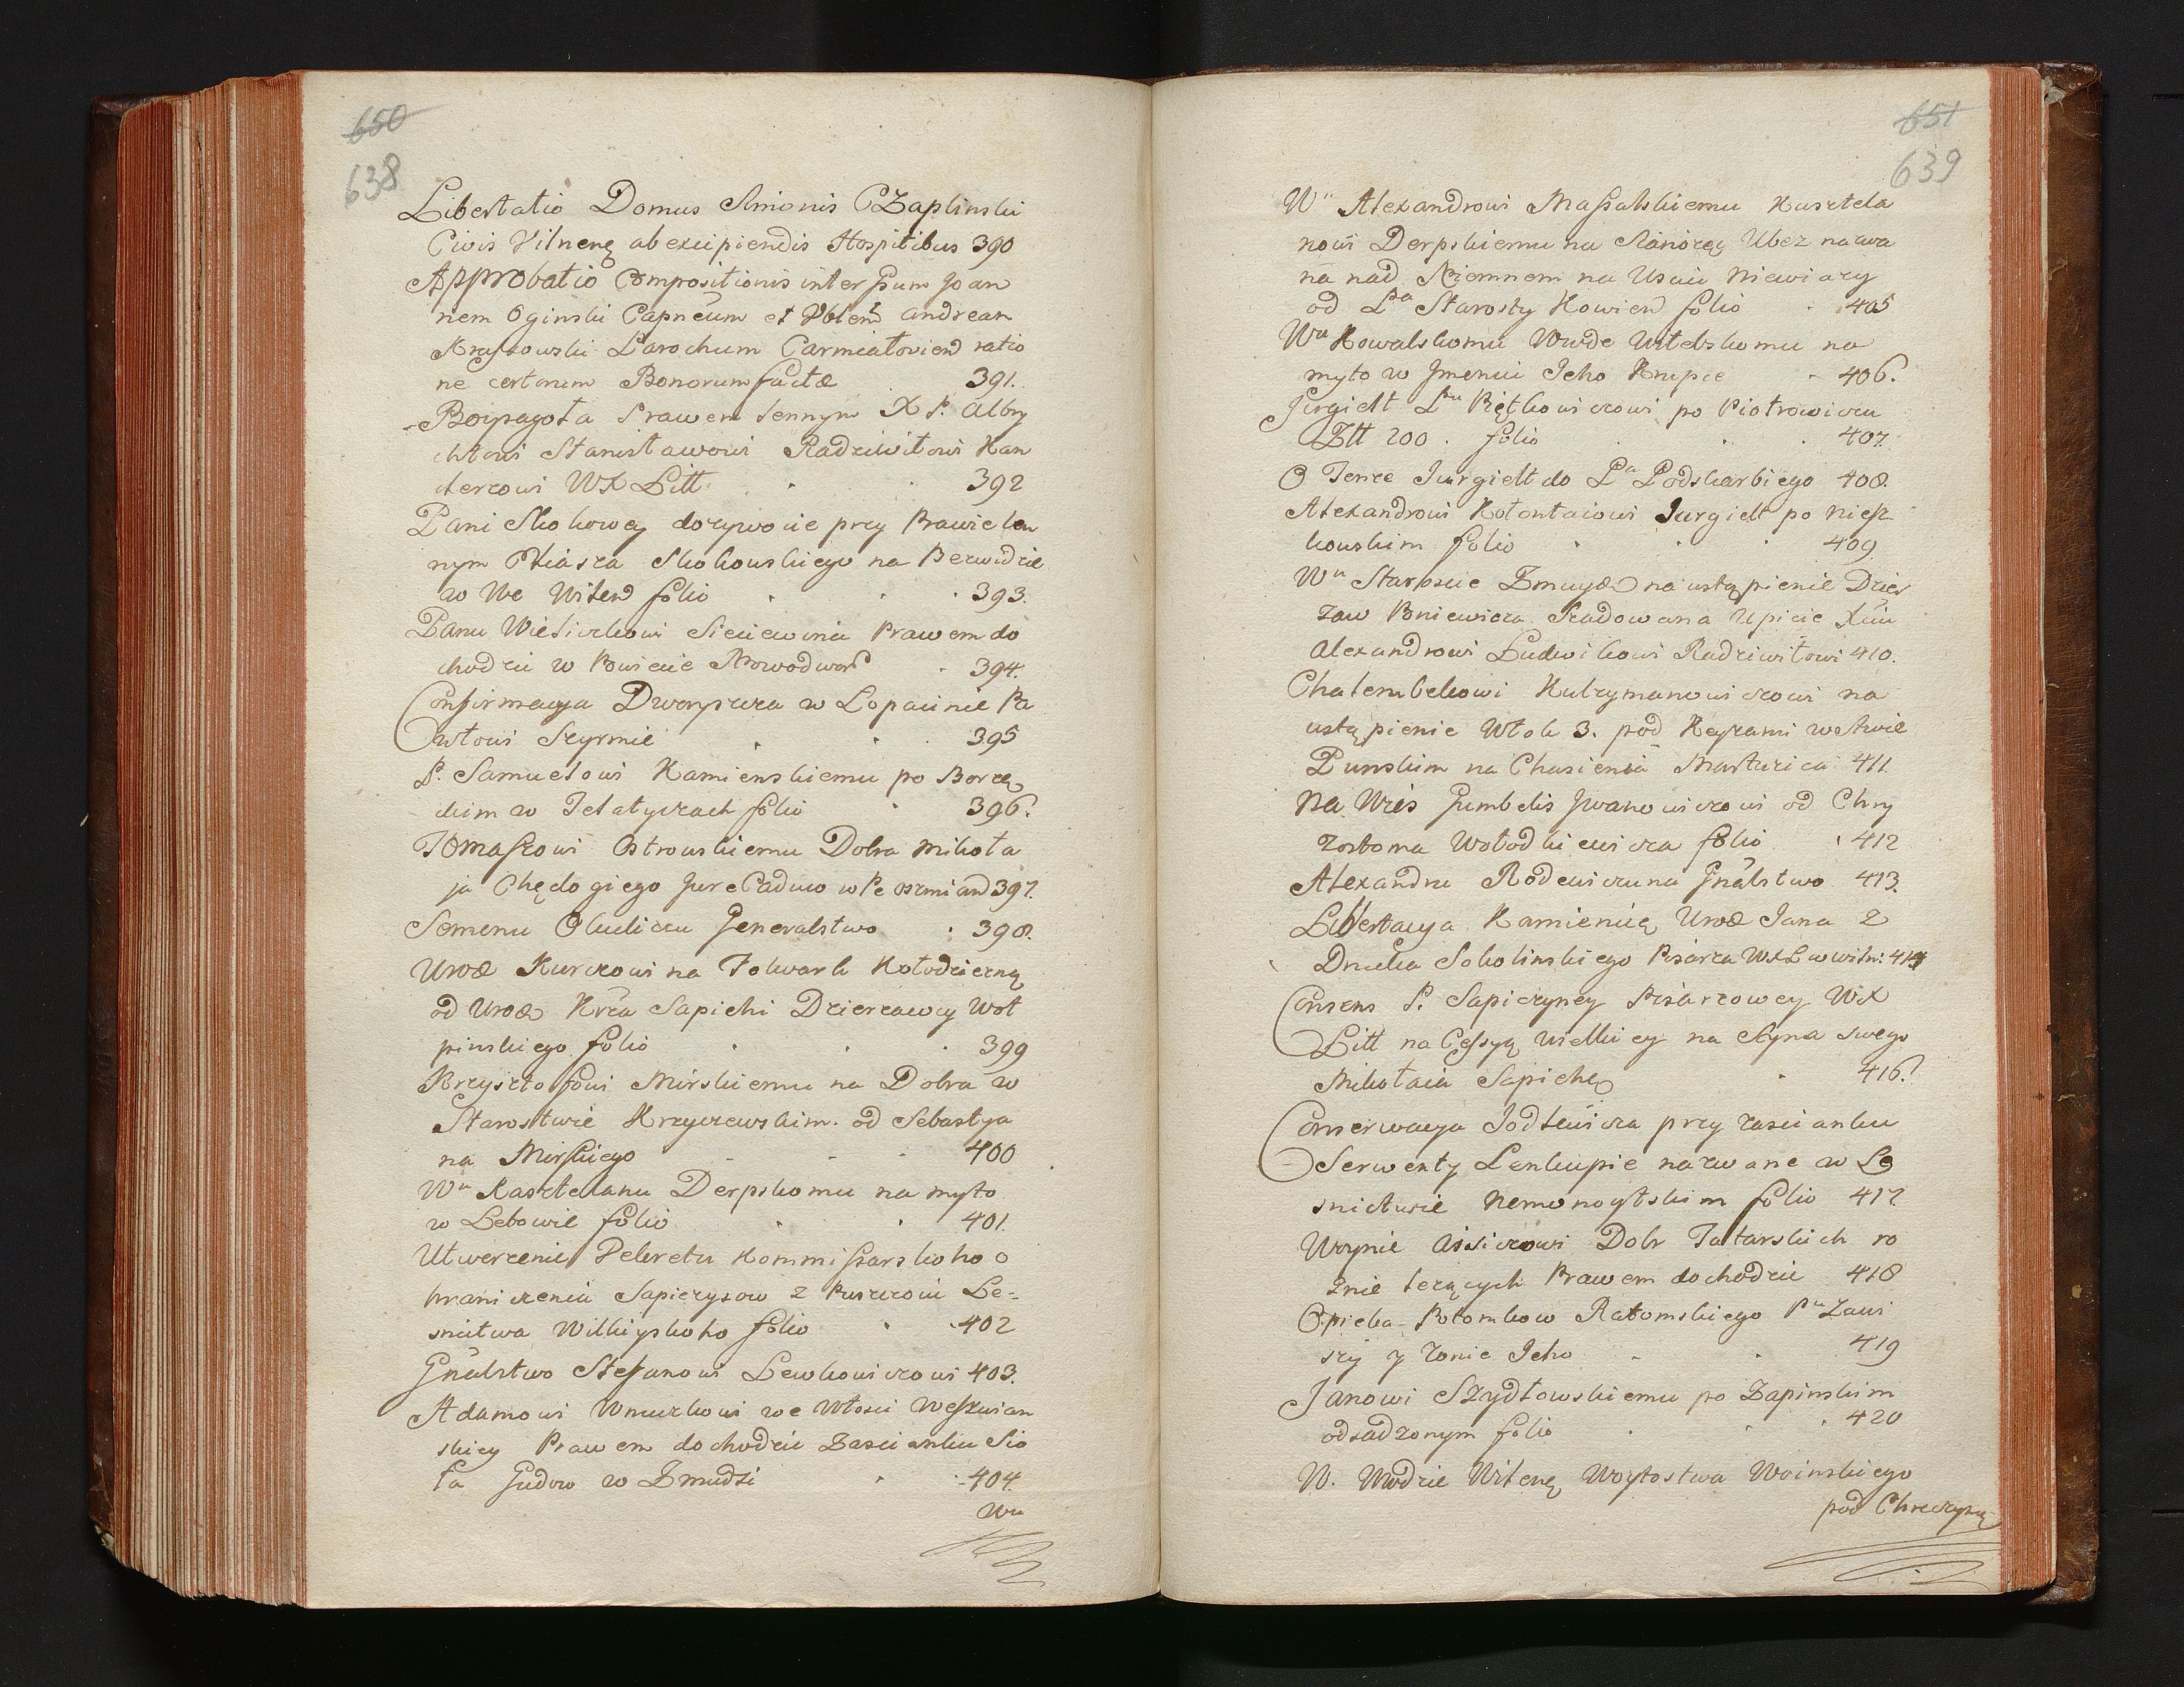 650
638
Libertatio Domus Simonis CZaplinski
Civis Vilnenę ab excipiendis Hospitibus 390
Approbatio Compositionis inter Gsum Joan
nem Oginski Capneum et Vblem andream
Kryszowski Parochum Carmiałovien ratio
ne certorum Bonorum factæ 391.
Boypagoła Prawem Lennym X P. Albry
chtowi Stanisławowi Radziwiłowi Kan
clerzowi WX Litt 392
Pani Skokowey dozywocie przy Prawie Len
nym Ptasza Skokowskiego na Bezwidzie
w We Witen folio 393.
Panu Wiesiczkowi Sieniewina Prawem do
chodzic w Powiecie Nowodwor 394.
Confirmacya Dworzyszcza w Łopacinie Pa
włowi Szyrmie 395
P. Samuelowi Kamienskiemu po Borzę
ckim w Telatyczach folio 396.
TOmaszowi Ostrowskiemu Dobra Mikoła
ja Chędogiego Jure Caduco w Pe oszmian 397.
Semenu Okuliczu Generalstwo 398.
Urod Kurczowi na Folwark Kołodziezną
od Urod Krza Sapiehi Dzierzawcy Woł
pinskiego folio 399
Krzysztofowi Mirskiemu na Dobra w
Starostwie Krzyczewskim od Sebastya
na Mirskiego 400
Wu Kasztelanu Derpskomu na myto
w Lebowie folio 401.
Utwerzenie Dekretu Kommissarskoho o
hraniczeniu Sapiezysow z Puszczoiu Le=
snictwa Wilkiyskoho folio 402
Gnalstwo Stefanowi Lewkowiczowi 403.
Adamowi Wnuczkowi we Włosci Weszwian
skiey Prawem dochodzic Zascianku Sio
ła Gudow w Zmudzi 404.
Wu
651
639
Wu Alexandrowi Massalskiemu Kasztela
nowi Derpskiemu na Sianozęc Ubez nazwa
na nad Niemnem na Usciu Niewiazy
od Pa Starosty Kowien folio 405
Wu Kowalskomu Wwde Witebskomu na
myto w Jmeniu Jeho Krupce 406.
Jurgielt Pu Piętkowiczowi po Piotrowiczu
Złt 200. folio 407.
O Tenze Jurgielt do Pa Podskarbiego 408.
Alexandrowi Kołontaiowi Jurgielt po Niesz
kowskim folio 409
Wu Staroscie Zmuyd na ustąpienie Dzier
zaw Poniewieza Szadowana Upicie Xciu
Alexandrowi Ludwikowi Radziwiłowi 410.
Chalembekowi Kulzymanowiczowi na
ustąpienie Włok 3. pod Keyzami w Stwie
Punskim na Chasienia Murtuzica 411.
Na Wies Gumbelis Jwanowiczowi od Chry
zostoma Wołodkiewicza folio 412
Alexandru Rodewiczunu Gnalstwo 413.
Libertacya Kamienicą Urod Jana z
Drucka Sokolinskiego Pisarza WXL w wiln: 414
Consens P. Sapiezyney Pisarzowey WX
Litt na Cessyą Wielkiey na Syna swego
Mikołaia Sapiehę 416.
Conserwacya Jodkiewicza przy zascianku
Serwenty Lenkupie nazwane w Le
snictwie Nemonoytskim folio 417
Woynie Aisiczowi Dobr Tatarskich ro
znie lezących Prawem dochodzic 418
Opieka Potomkow Ratomskiego Pu Zawi
szy y zonie Jeho 419
Janowi Szydłowskiemu po Zapinskim
odsadzonym folio 420
W. Wwodzie Wilenę Woytostwa Woinskiego
pod Chreczyną